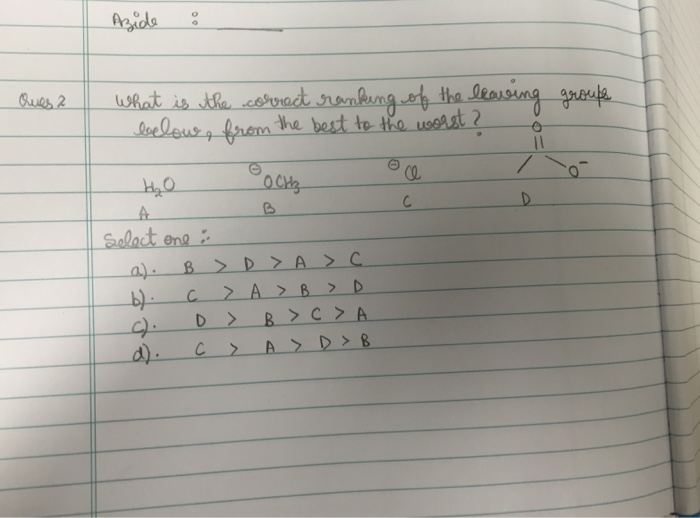 Azide : ____
Ques 2 What is the correct ranking of the leaving groups
below, from the best to the worst?
H₂O ⊖OCH₃ ⊖Cl O O⁻
A B C D
Select one :
a). B > D > A > C
b). C > A > B > D
c). D > B > C > A
d). C > A > D > B